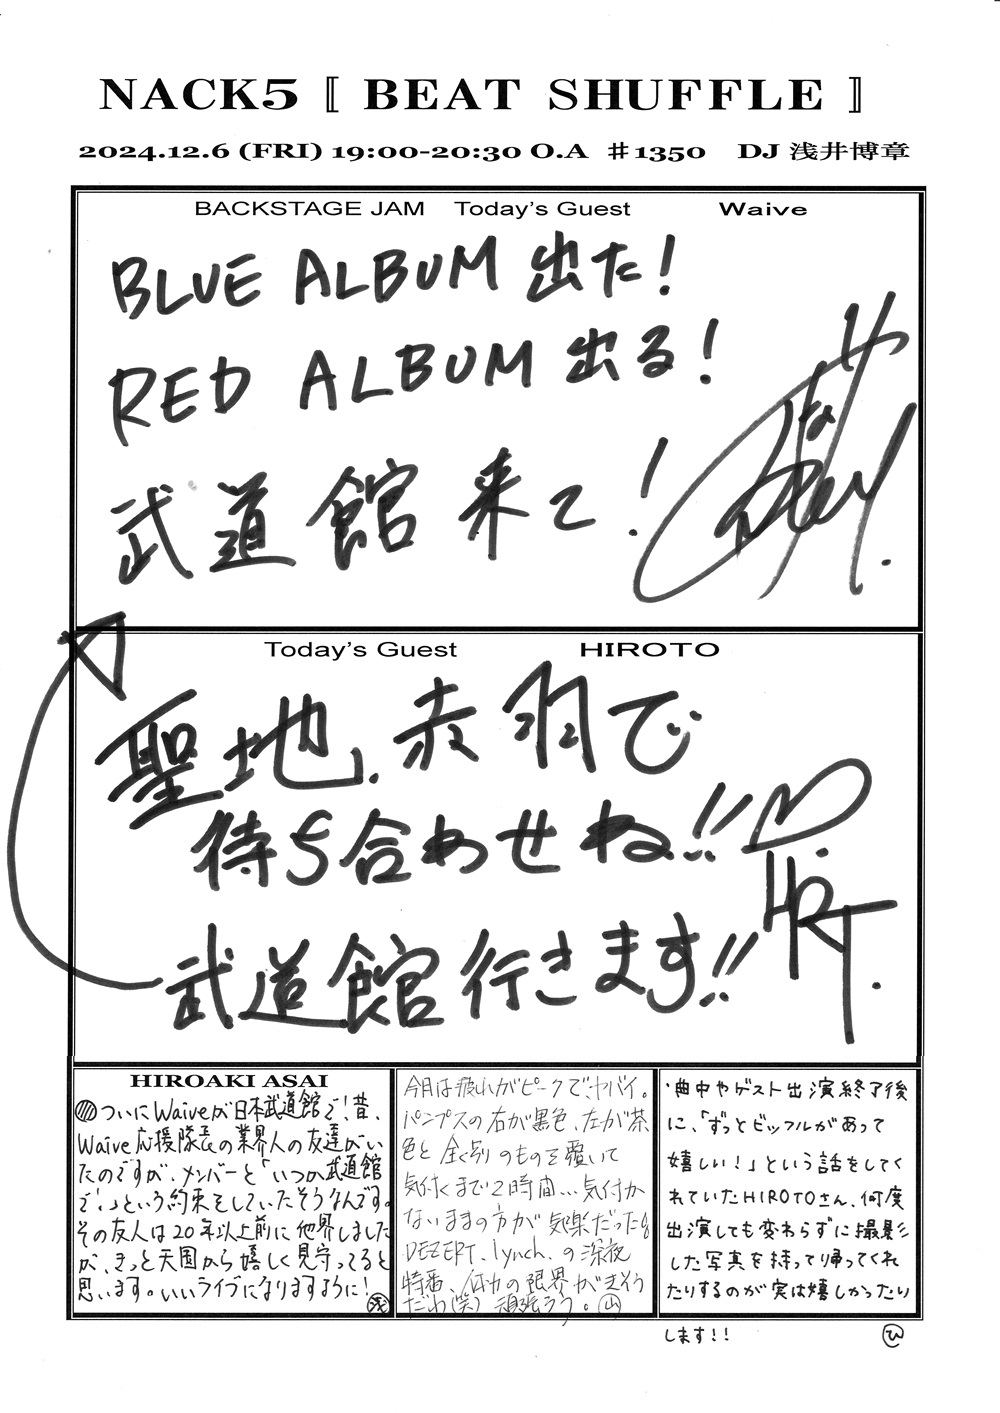 NACK5 〚 BEAT SHUFFLE 〛
2024.12.6 (FRI) 19:00-20:30 O.A ♯1350 DJ 浅井博章
BACKSTAGE JAM Today's Guest Waive
BLUE ALBUM 出た!
RED ALBUM 出る!
武道館 来て!
Today's Guest HIROTO
聖地、赤羽で
待ち合わせね!!
HRT.
武道館行きます!!
HIROAKI ASAI
ついにWaiveが日本武道館で!昔、
Waive応援隊長の業界人の友達がい
たのですが、メンバーと「いつか武道館
で!」という約束をしていたそうなんです。
その友人は20年以上前に他界しました
が、きっと天国から嬉しく見守ってると
思います。いいライブになりますように! 浅
今月は疲れがピークで、ヤバイ。
パンプスの右が黒色、左が茶
色と全く別のものを履いて
気付くまで2時間…気付か
ないままの方が気楽だった
DEZERT、lynch.の深夜
特番、体力の限界がきそう
だわ(笑) 頑張ろう。山
曲中やゲスト出演終了後
に、「ずっとビッフルがあって
嬉しい!」という話をしてく
れていたHIROTOさん、何度
出演しても変わらずに撮影
した写真を持って帰ってくれ
たりするのが実は嬉しかったり
します!! ひ